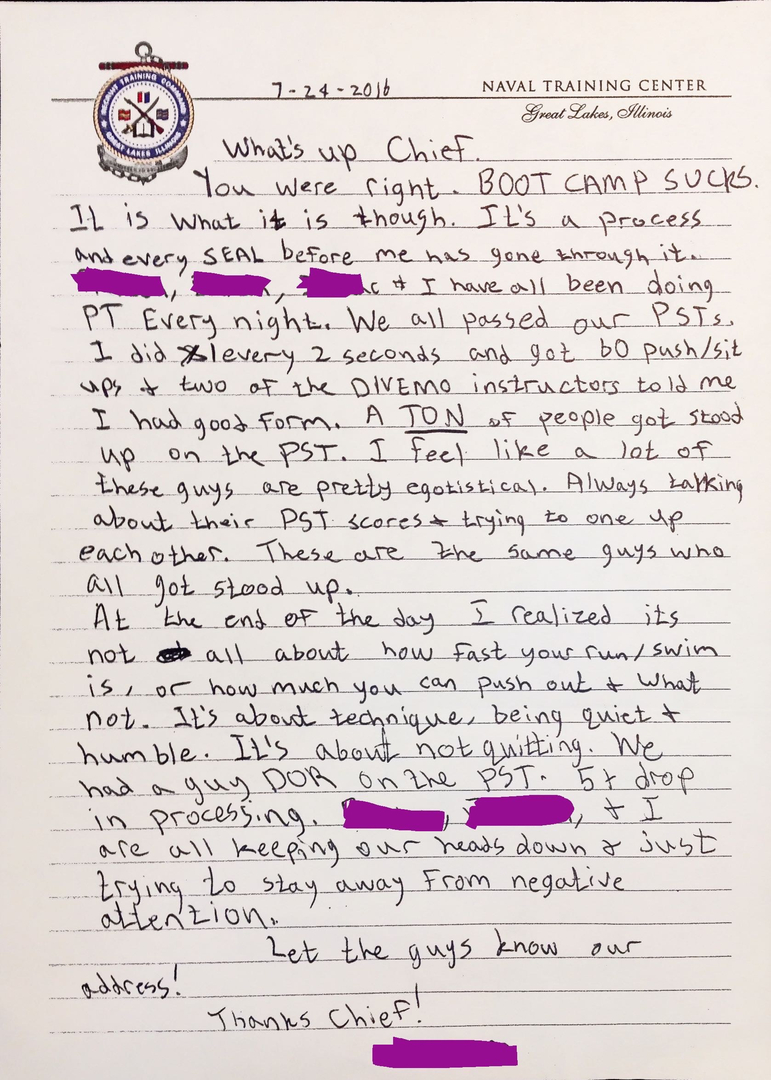 RECRUIT TRAINING COMMAND
GREAT LAKES ILLINOIS
7-24-2016
NAVAL TRAINING CENTER
Great Lakes, Illinois
What's up Chief.
You were right. BOOT CAMP SUCKS.
It is what it is though. It's a process
and every SEAL before me has gone through it.
, , c + I have all been doing
PT Every night. We all passed our PSTs.
I did 1 every 2 seconds and got 60 push/sit
ups + two of the DIVEMO instructors told me
I had good form. A TON of people got stood
up on the PST. I feel like a lot of
these guys are pretty egotistical. Always talking
about their PST scores + trying to one up
each other. These are the same guys who
all got stood up.
At the end of the day I realized its
not all about how fast your run/swim
is, or how much you can push out + what
not. It's about technique, being quiet +
humble. It's about not quitting. We
had a guy DOR on the PST. 5+ drop
in processing. , , + I
are all keeping our heads down + just
trying to stay away from negative
attention.
Let the guys know our
address!
Thanks Chief!